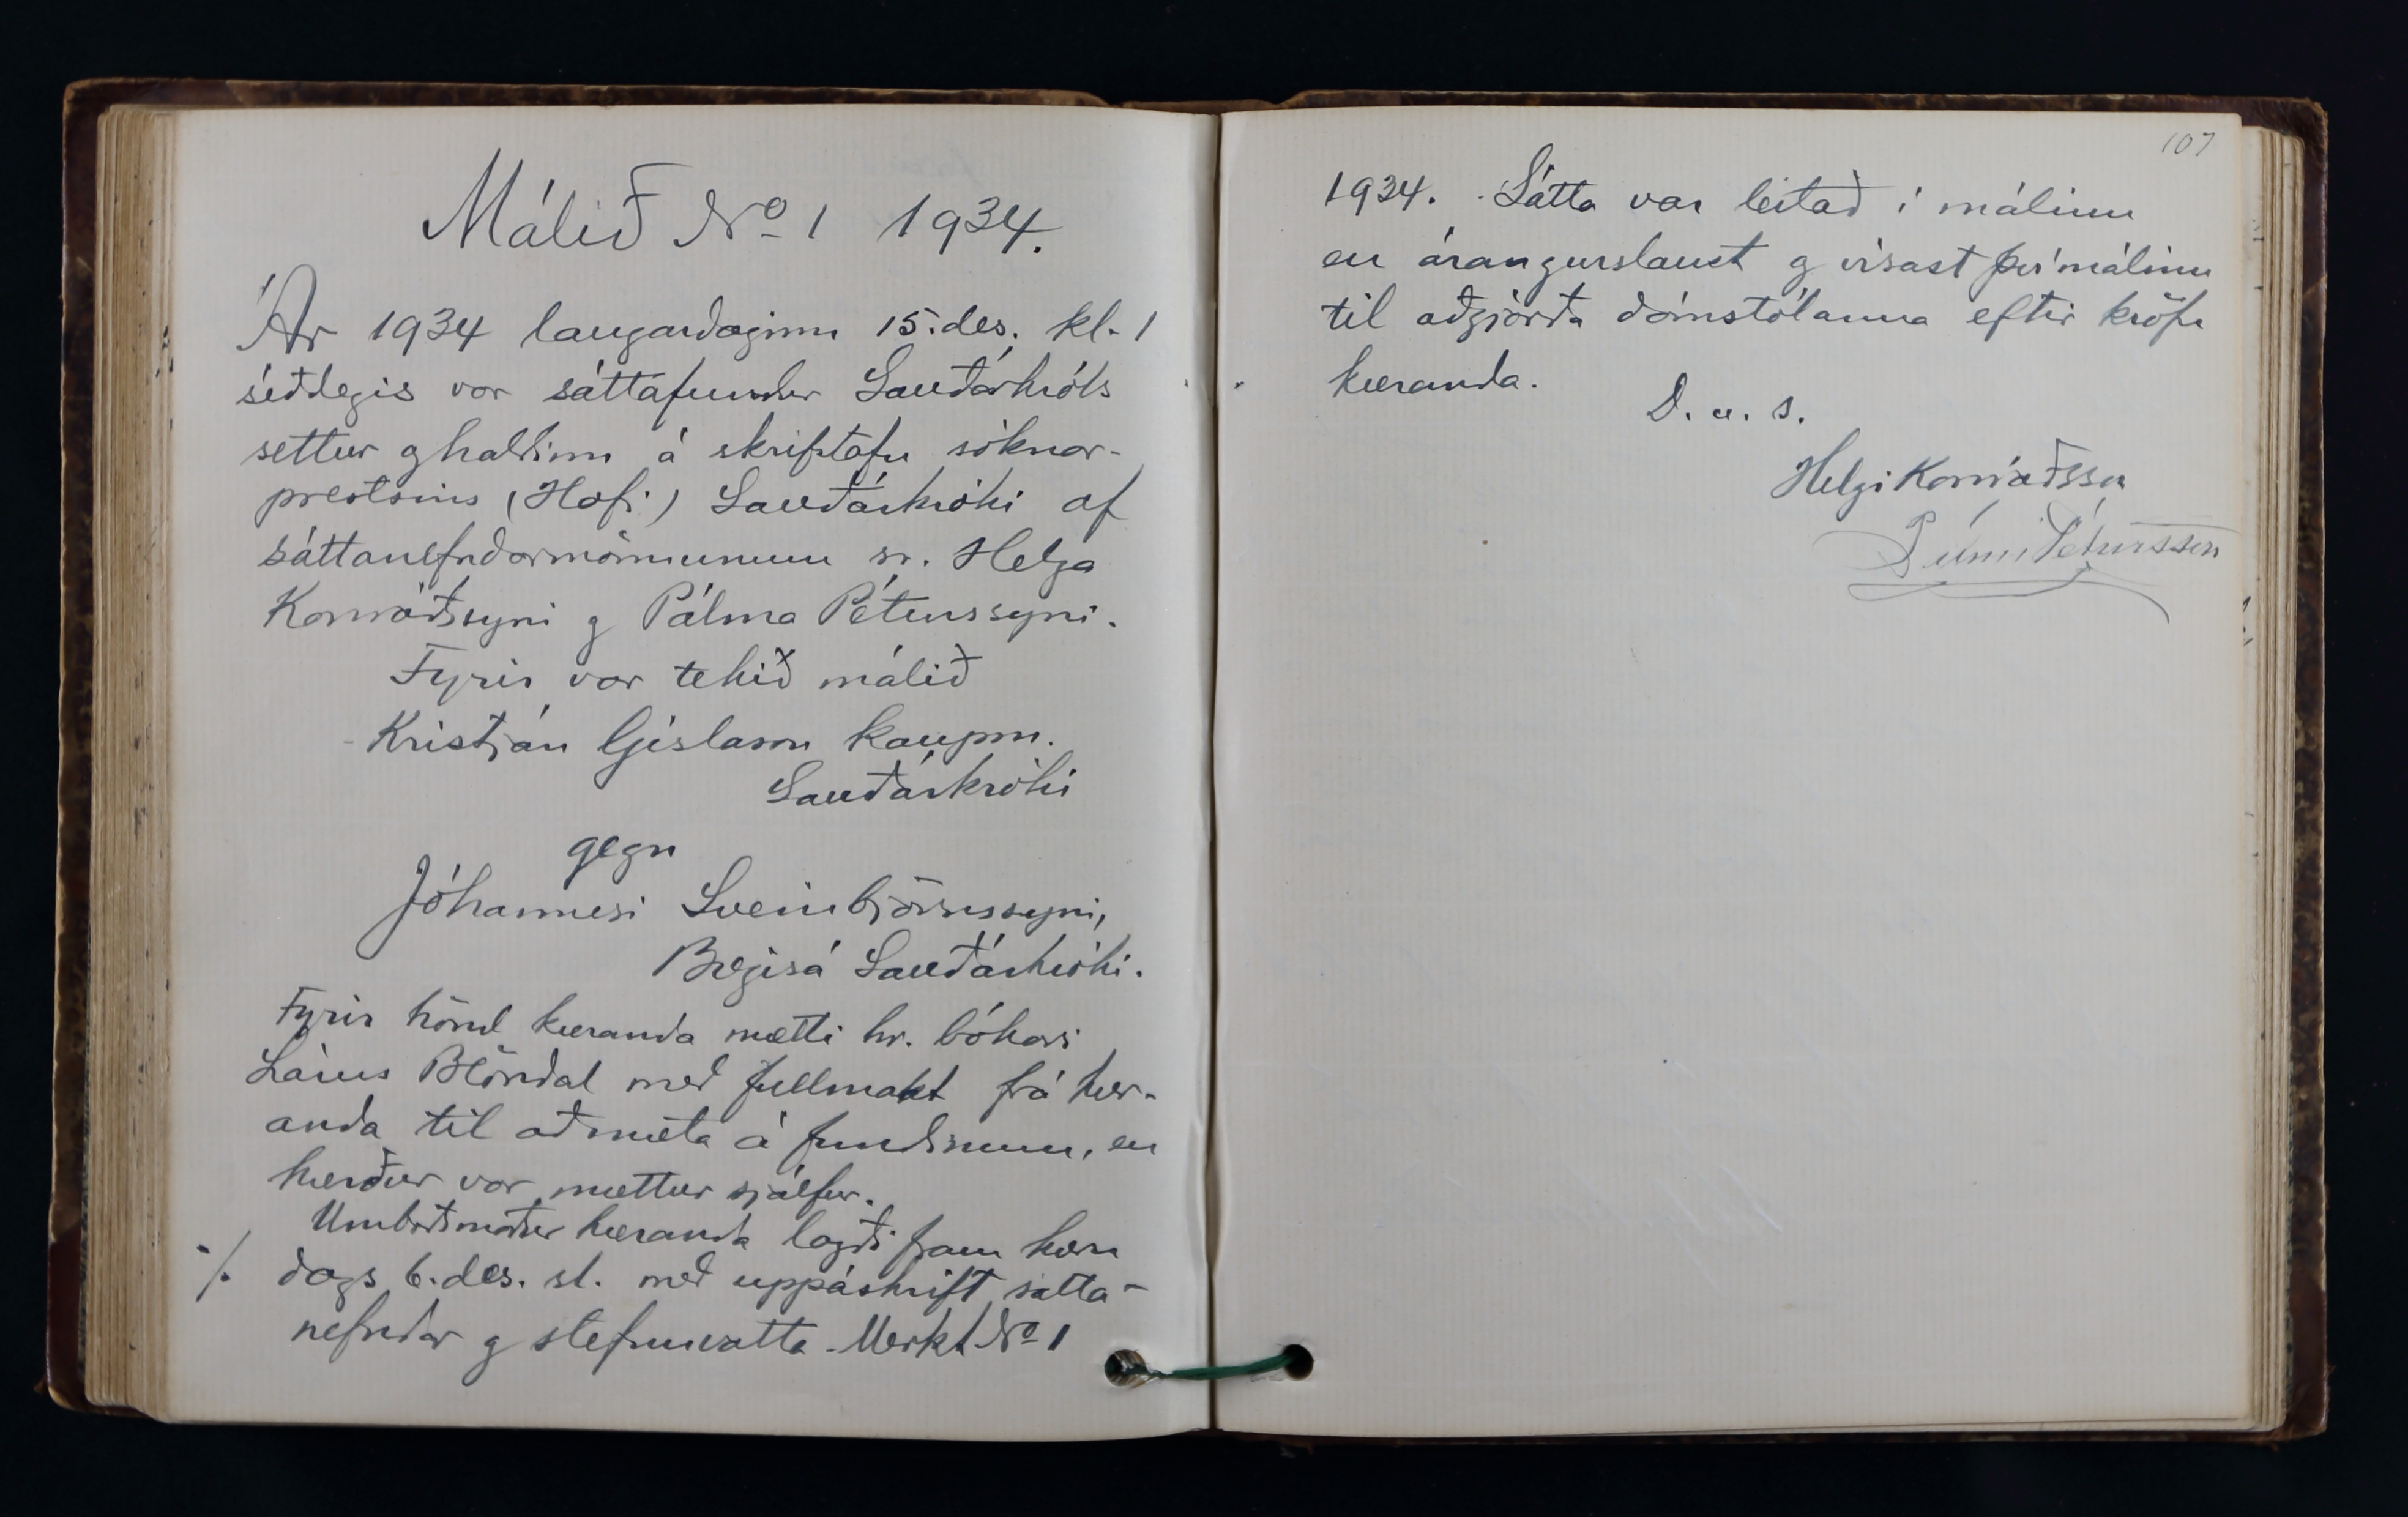 Málið No 1 1934.
Ár 1934 laugardaginn 15. des. kl. 1
síðdegis var sáttafundur Sauðárkróks
settur og haldinn á skrifstofu sóknar-
prestsins (Hofi) Sauðárkróki af
sáttanefndarmönnunum sr. Helga
Konráðssyni og Pálma Péturssyni.
Fyrir var tekið málið
Kristján Gíslason kaupm.
Sauðárkróki
gegn
Jóhannesi Sveinbjörnssyni,
Sauðárkróki.
Fyrir hönd kæranda mætti hr. bókari
Lárus Blöndal með fullmakt frá kær-
anda til að mæta á fundinum, en
kærður var mættur sjálfur.
Umboðsmaður kæranda lagði fram kæru
./. dags 6. des. sl. með uppáskrift sátta-
nefndar og stefnuvotta. Merkt No 1
107
1934. Sátta var leitað í málinu
en árangurslaust og vísast því málinu
til aðgjörða dómstólanna eftir kröfu
kæranda.
D. u. s.
Helgi Konráðsson
Pálmi Pétursson